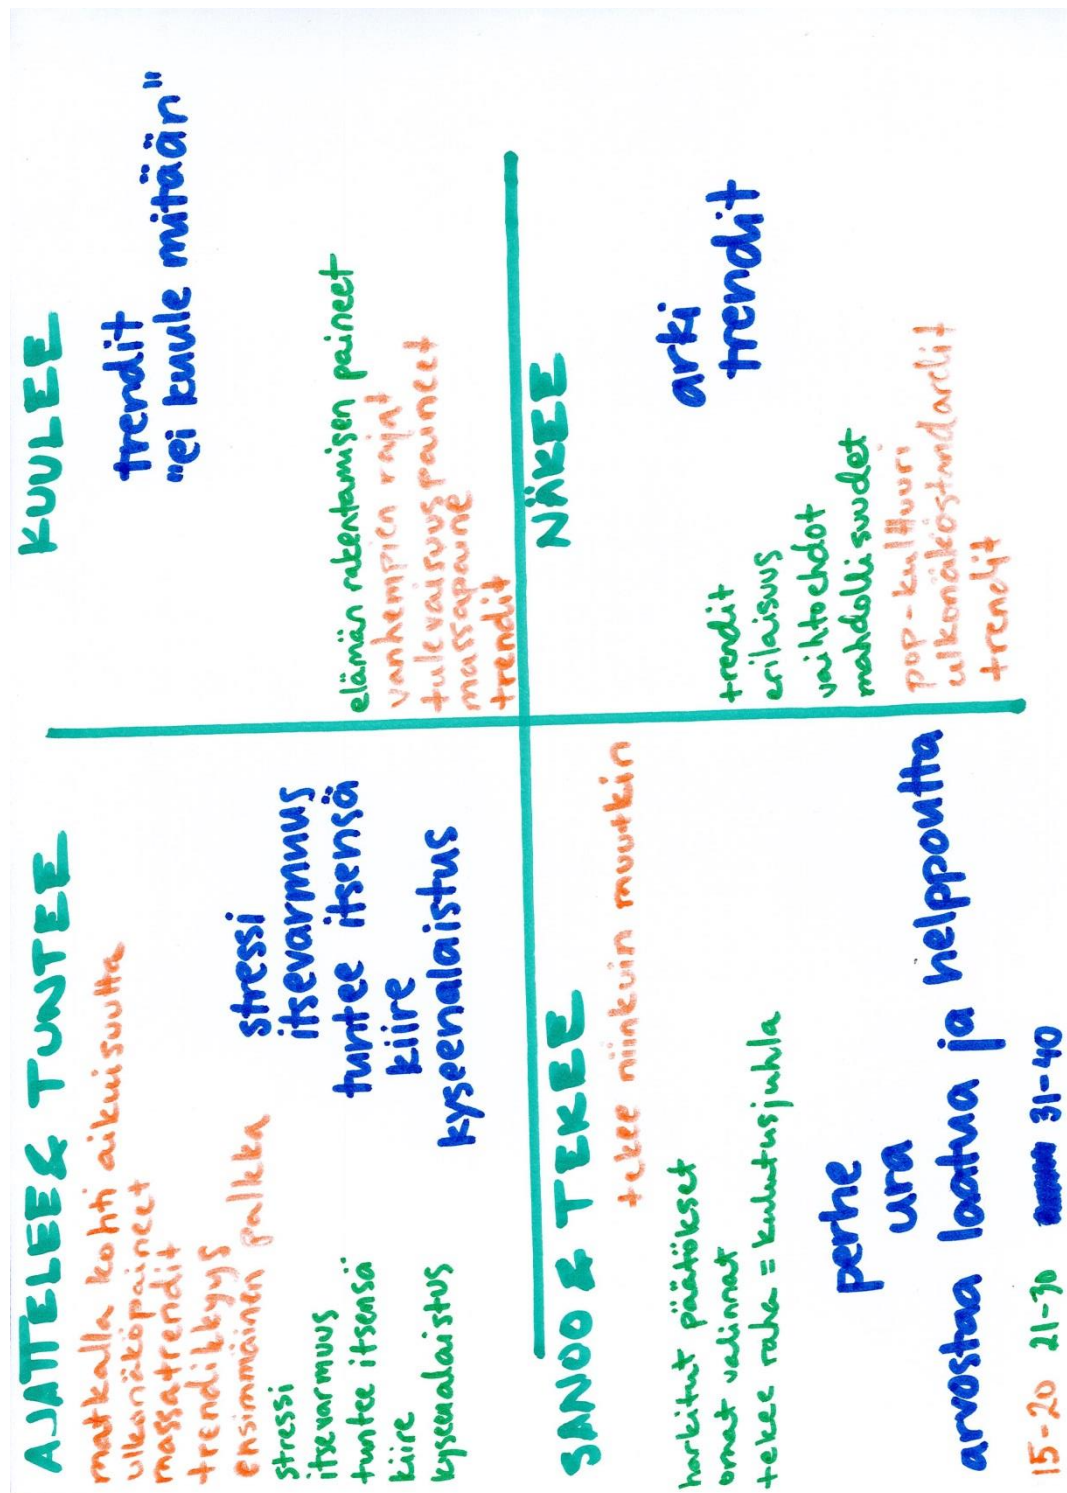 AJATTELEE & TUNTEE
matkalla kohti aikuisuutta
ulkonäköpaineet
massatrendit
trendikkyys
ensimmäinen palkka
stressi
itsevarmuus
tuntee itsensä
kiire
kyseenalaistus
stressi
itsevarmuus
tuntee itsensä
kiire
kyseenalaistus
KUULEE
trendit
"ei kuule mitään"
elämän rakentamisen paineet
vanhempien rajat
tulevaisuuspaineet
massapaine
trendit
SANOO & TEKEE
tekee niinkuin muutkin
harkitut päätökset
omat valinnat
tekee rahe = kulutusjuhla
perhe
ura
arvostaa laatua ja helppoutta
NÄKEE
arki
trendit
trendit
erilaisuus
vaihtoehdot
mahdollisuudet
pop-kulttuuri
ulkonäköstandardit
trendit
15-20 21-30 31-40